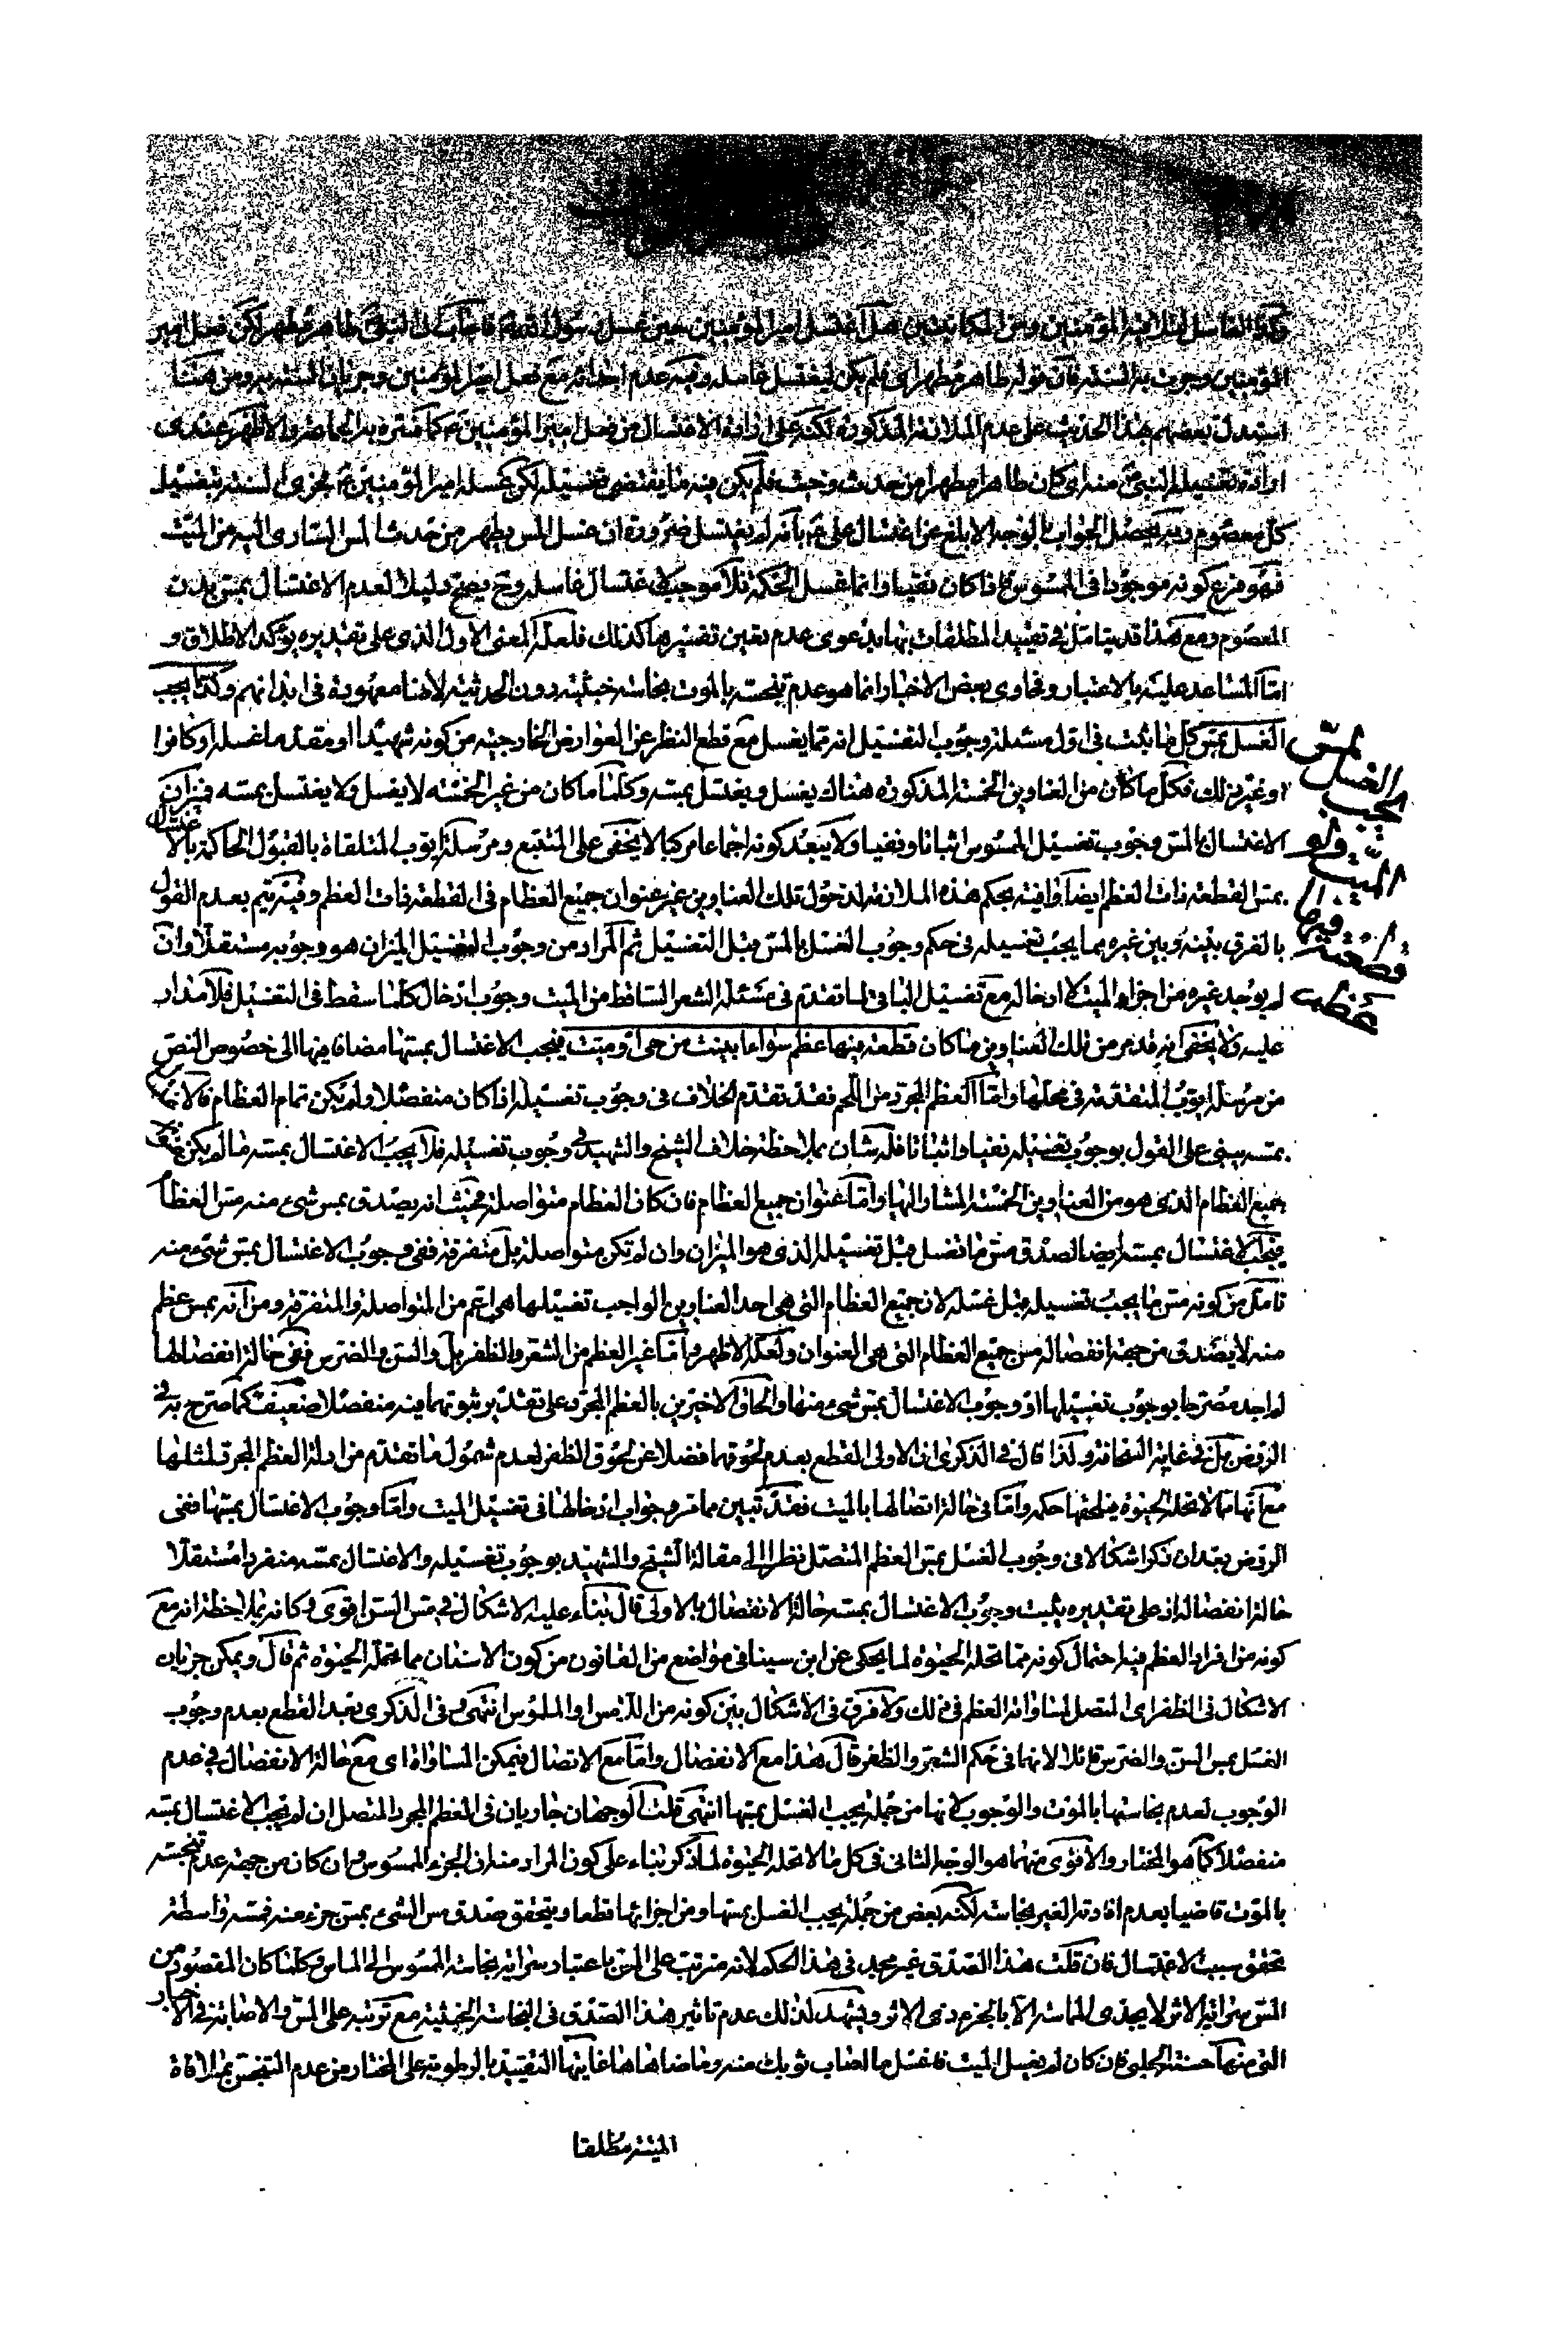 المؤمنين وجرت به السنة فان قوله طاهر مطهر اى فلم يكن ليغتسل غاسله وفيه عدم مع فعل امير المؤمنين وجريان السنة به ومن هنا
استدل بعضهم بهذا الحديث على عدم الملازمة المذكورة لكنه على ارادة الاغتسال من فعل امير المؤمنين ع كما فسره به الجماعة والاظهر عندى
ارادة تغسيله النبى ص منه اى كان طاهرا مطهرا من حدث وخبث فلم يكن فيه ما يقتضى تغسيله لكن غسله امير المؤمنين ع لجرى السنة بتغسيل
كل معصوم وفيه يحصل الجواب بالوجه الابلغ عن اغتسال على ع بانه لم يغتسل ضرورة ان غسل المس يطهر من حدث المس السارى اليه من الميت
فهو فرع كونه موجودا فى الممسوس فاذا كان نقيا وانما غسل لحكمة فلا موجب لاغتسال غاسله وح يصح دليلا لعدم الاغتسال بمس بدن
المعصوم ومع هذا قد يتامل فى تقييد المطلقات بها بدعوى عدم تعين تفسيرها كذلك فلعله المعنى الاول الذى على تقديره يؤكد الاطلاق و
اما المساعد عليه بالاعتبار وفحاوى بعض الاخبار انما هو عدم تنجسه بالموت نجاسة خبثية دون الحدثية لانها معهودة فى ابدانهم وكذا يجب
الغسل بمس كل ما ثبت فى اول مسئلة وجوب التغسيل انه مما يغسل مع قطع النظر عن العوارض الخارجية من كونه شهيدا او مقدما غسله او كافرا
او غير ذلك فكل ما كان من العناوين الخمسة المذكورة هناك يغسل ويغتسل بمسه وكلما ما كان من غير الخمسة لا يغسل ولا يغتسل بمسه فميزان
الاغتسال بالمس وجوب تغسيل الممسوس اثباتا ونفيا ولا يبعد كونه اجماعا مركبا كما لا يخفى على المتتبع ومرسلة ايوب المتلقاة بالقبول الحاكمة بالاغتسال
بمس القطعة ذات العظم ايضا وافية بحكم هذه الملازمة لدخول تلك العناوين غير عنوان جميع العظام فى القطعة ذات العظم وفيه يتم بعدم القول
بالفرق بينه وبين غيره مما يجب تغسيله فى حكم وجوب الغسل بالمس قبل التغسيل ثم المراد من وجوب التغسيل الميزان هو وجوبه مستقلا وان
لم يوجد غيره من اجزاء الميت لا ادخاله مع تغسيل الباقى لما تقدم فى مسئلة الشعر الساقط من الميت وجوب ادخال كلما سقط فى التغسيل فلا مدار
عليه ولا يخفى انه قد مر من تلك العناوين ما كان قطعة فيها عظم سواء ابينت من حى او ميت فيجب الاغتسال بمسها مضافا فيها الى خصوص النص
من مرسلة ايوب المتقدمة فى محلها واما العظم المجرد من اللحم فقد تقدم الخلاف فى وجوب تغسيله اذا كان منفصلا ولم يكن تمام العظام فالاغتسال
بمسه يبنى على القول بوجوب تغسيله نفيا واثباتا فله شان بملاحظة خلاف الشيخ والشهيد فى وجوب تغسيله فلا يجب الاغتسال بمسه ما لم يكن
جميع العظام الذى هو من العناوين الخمسة المشار اليها واما عنوان جميع العظام فان كان العظام متواصلة بحيث انه يصدق بمس شىء منه مس العظام
فيجب الاغتسال بمسه ايضا لصدق مس ما تغسل قبل تغسيله الذى هو الميزان وان لم تكن متواصلة بل متفرقة ففى وجوب الاغتسال بمس شىء منه
تامل من كونه مس ما يجب تغسيله قبل غسله لان جميع العظام التى هى احد العناوين الواجب تغسيلها هى اعم من المتواصلة والمتفرقة ومن انه بمس عظم
منه لا يصدق من جهة انفصاله مس جميع العظام التى هى العنوان ولعله الاظهر واما غير العظم من الشعر والظفر بل والسن والضرس ففى حالة انفصالها
لم اجد مصرحا بوجوب تغسيلها او وجوب الاغتسال بمس شىء منها والحاق الاخيرين بالعظم المجرد على تقدير ثبوتهما فيه منفصلا ضعيف كما صرح به فى
الروض بل فى غاية السخافة ولذا قال فى الذكرى ان الاولى القطع بعدم لحوقهما فضلا عن لحوق الظفر لعدم شمول ما تقدم من ادلة العظم المجرد لمثلها
مع انها مما لا تحله الحيوة فيلحقها حكمه واما فى حالة اتصالها بالميت فقد تبين مما مر وجواب ادخالها فى تغسيل الميت واما وجوب الاغتسال بمسها ففى
الروض بعد ان ذكر اشكالا فى وجوب الغسل بمس العظم المتصل نظرا الى مقالة الشيخ والشهيد بوجوب تغسيله والاغتسال بمسه منفردا مستقلا
حالة انفصاله اذ على تقديره يثبت وجوب الاغتسال بمسه حالة الانفصال بالاولى قال بناء عليه الاشكال فى مس السن اقوى وكانه بملاحظة انه مع
كونه من افراد العظم فيه احتمال كونه مما تحله الحيوة لما يحكى عن ابن سينا فى مواضع من القانون من كون الاسنان مما تحله الحيوة ثم قال ويمكن جريان
الاشكال فى الظفر اى المتصل لمساواته العظم فى ذلك ولا فرق فى الاشكال بين كونه من اللامس او الملموس انتهى وفى الذكرى بعد القطع بعدم وجوب
الغسل بمس السن والضرس قائلا لانهما فى حكم الشعر والظفر قال هذا مع الانفصال واما مع الاتصال فيمكن المساواة اى مع حالة الانفصال فى عدم
الوجوب لعدم نجاستها بالموت والوجوب لانها من جملة يجب الغسل بمسها انتهى قلت الوجهان جاريان فى العظم المجرد المتصل ان لم يجب الاغتسال بمسه
منفصلا كما هو المختار والاقوى منهما هو الوجه الثانى فى كل ما لا تحله الحيوة لما ذكر بناء على كون المراد منه ان الجزء الممسوس وان كان من جهة عدم تنجسه
بالموت قاضيا بعدم افادته الغير نجاسة لكنه بعض من جملة يجب الغسل بمسها ومن اجزائها قطعا ويتحقق صدق مس الشىء بمس جزء منه فمسه واسطة
تحقق سبب الاغتسال فان قلت هذا الصدق غير مجد فى هذا الحكم لانه مترتب على المس باعتبار سراية نجاسة الممسوس الى الماس وكلما كان المقصود من
المس سراية الاثر لا يجدى المماسة الا بالجزء ذى الاثر ويشهد لذلك عدم تاثير هذا الصدق فى النجاسة الخبثية مع ترتبه على المس والاصابة فى الاخبار
التى منها حسنة الحلبى فان كان لم يغسل الميت فاغسل ما اصاب ثوبك منه وما ضاهاها غايتها التقييد بالرطوبة على المختار من عدم التنجس بملاقاة
الميتة مطلقا